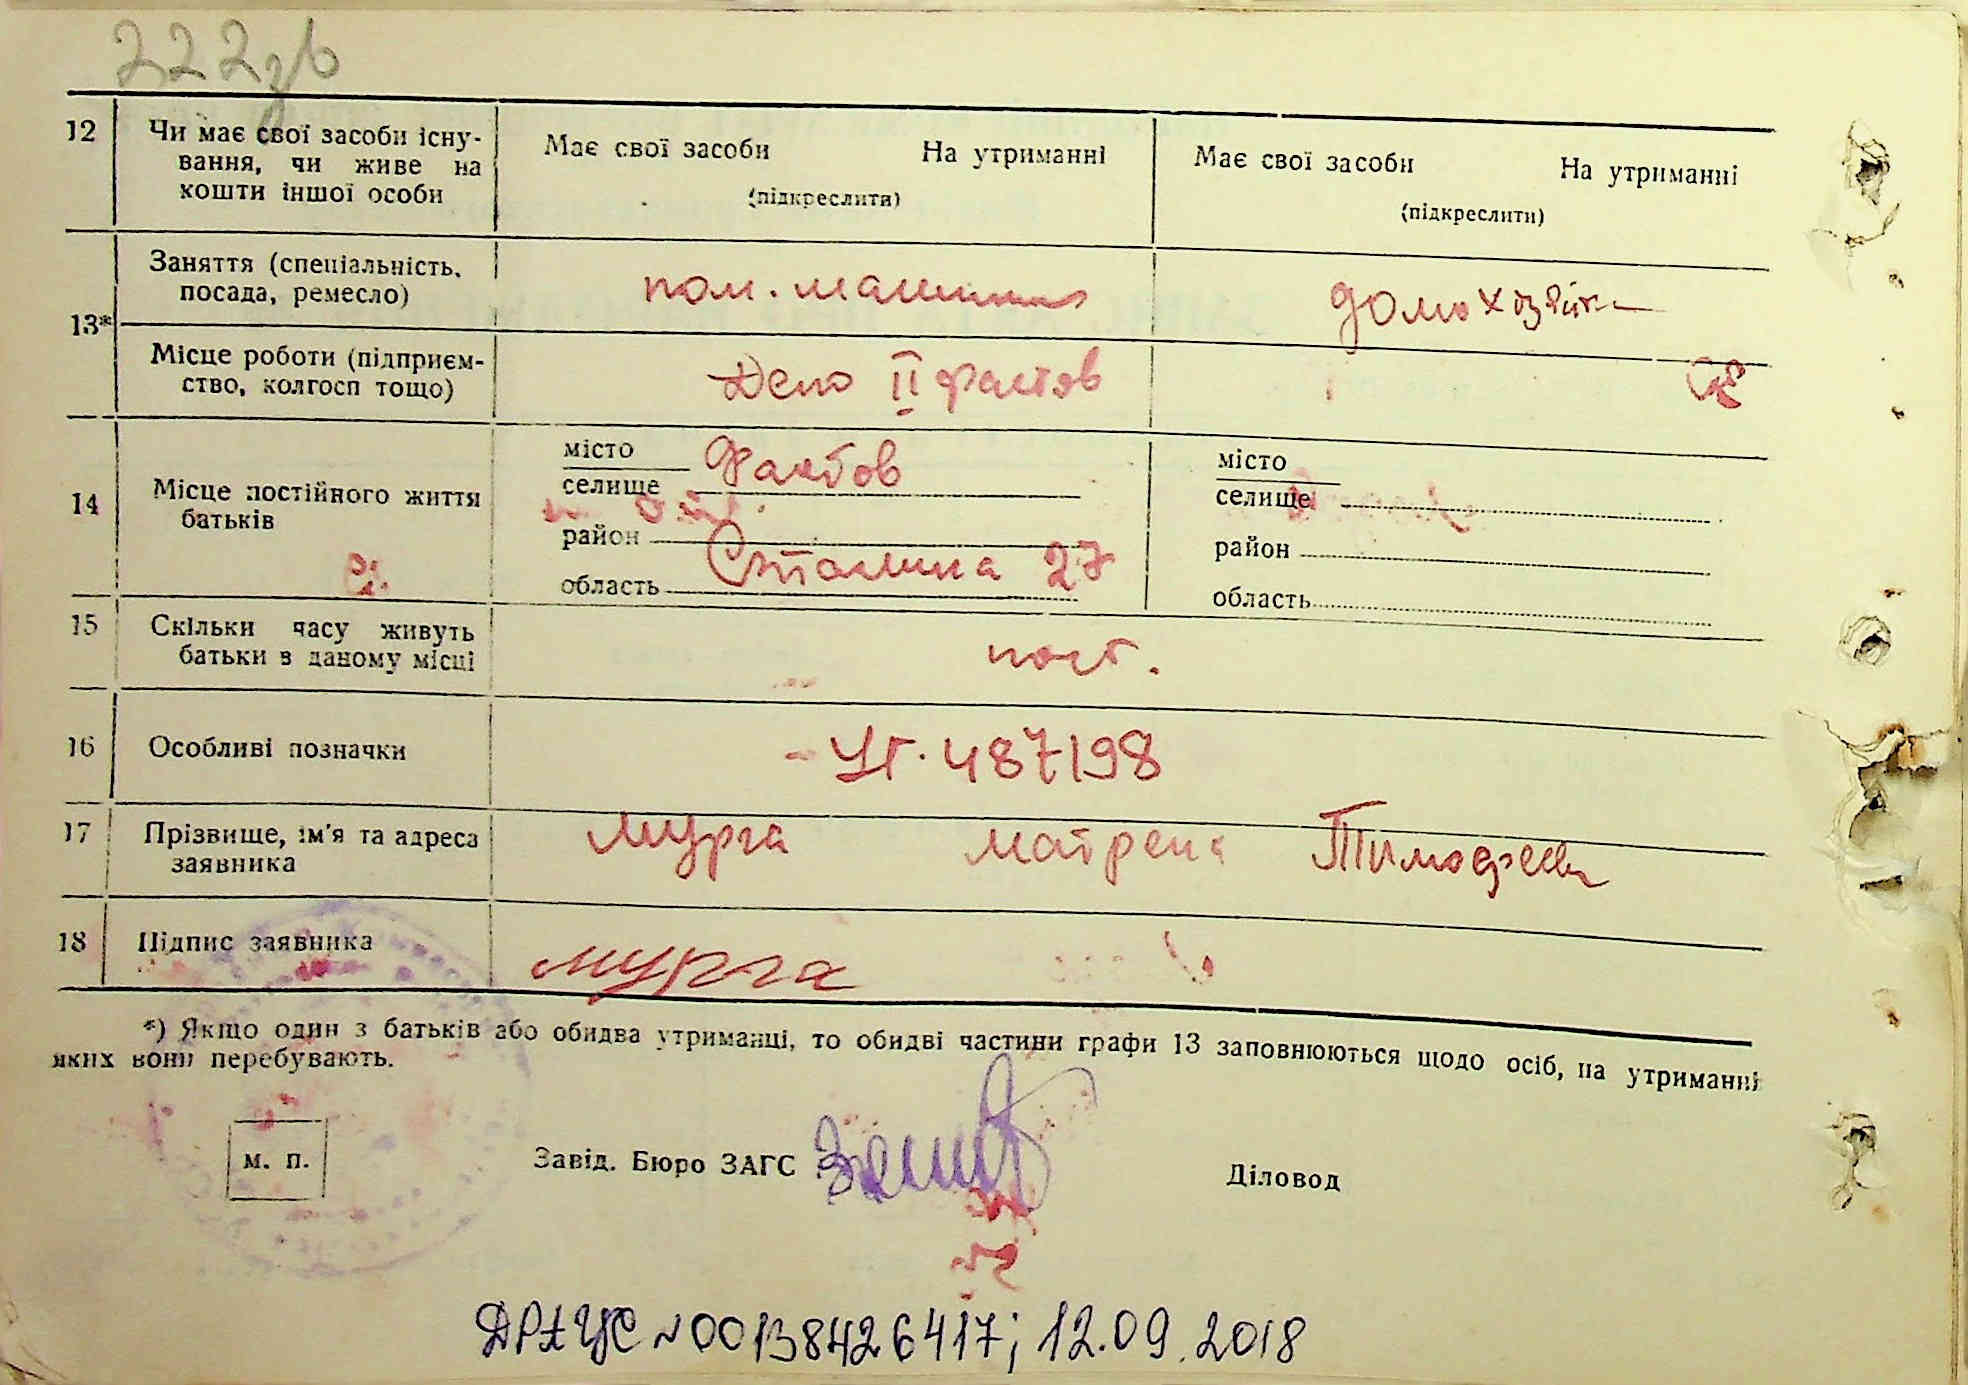 222зв
12 Чи має свої засоби існу-
вання, чи живе на
кошти іншої особи
Має свої засоби На утриманні
(підкреслити)
Має свої засоби На утриманні
(підкреслити)
13* Заняття (спеціальність,
посада, ремесло)
пом. машинис
домохозяйка
Місце роботи (підприєм-
ство, колгосп тощо)
Депо II Фастов
14 Місце постійного життя
батьків
місто Фастов
селище
район
Сталина 27
область
місто
селище
район
область
15 Скільки часу живуть
батьки в даному місці
пост.
16 Особливі позначки
УГ. 487198
17 Прізвище, ім'я та адреса
заявника
Мурга Матрена Тимофеев
18 Підпис заявника
Мурга
*) Якщо один з батьків або обидва утриманці, то обидві частини графи 13 заповнюються щодо осіб, на утриманні
яких вони перебувають.
м. п.
Завід. Бюро ЗАГС
Діловод
ДРАЦС №00138426417; 12.09.2018